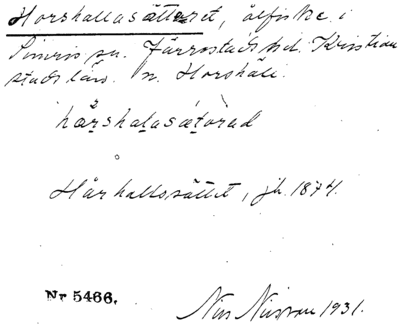 Horshallasätteret, ålfiske i
Simris sn. Järrestads hd. Kristian
stads län. n. Horshäll.
hå̄rshalasátorad
Hårhallssättet, jb. 1874.
Nr 5466. Nils Nilsson 1931.